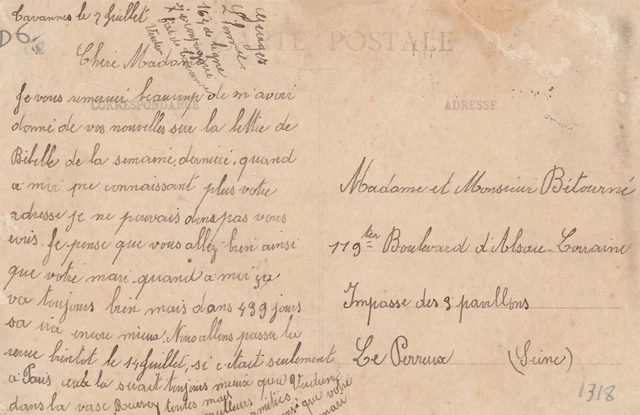 Tavannes le 7 Juillet
D6.
CARTE POSTALE
164 de ligne
Chère Madame
CORRESPONDANCE
ADRESSE
Je vous remercie beaucoup de m'avoir
donné de vos nouvelles sur la lettre de
Bébelle de la semaine dernière, quand
a moi ne connaissant plus votre
adresse je ne pouvais donc pas vous
écris. Je pense que vous allez bien ainsi
que votre mari quand a moi ça
va toujours bien mais dans 439 jours
sa ira encore mieux. Nous allons passer la
revue bientôt le 14 Juillet, si c'était seulement
à Paris cela serait toujours mieux que
dans la vase toutes mes
meilleurs amitiés Verdun
que votre
mari
Madame et Monsieur Bétourné
119 ter Boulevard d'Alsace-Lorraine
Impasse des 3 pavillons
Le Perreux (Seine)
1318